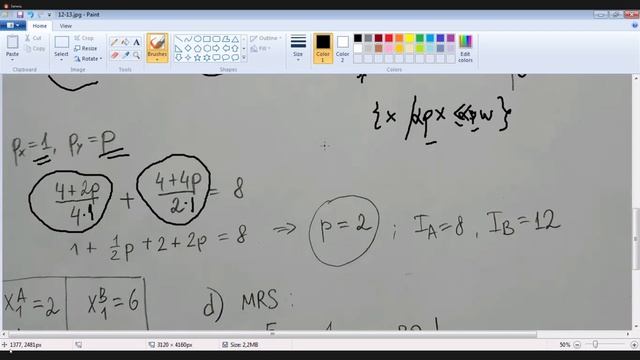 12-13.jpg - Paint
Home View
Paste
Cut
Copy
Select
Crop
Resize
Rotate
Brushes
Outline
Fill
Size
Color 1
Color 2
Edit colors
Clipboard Image Tools Shapes Colors
{x αpx ≤ αpw}
px = 1, py = p
(4+2p)/(4·1) + (4+4p)/(2·1) = 8
1 + 1/2 p + 2 + 2p = 8 ⇒ p = 2 ; I_A = 8, I_B = 12
X₁ᴬ = 2 X₁ᴮ = 6 d) MRS :
1377, 2481px 3120 × 4160px Size: 2,2MB 50%